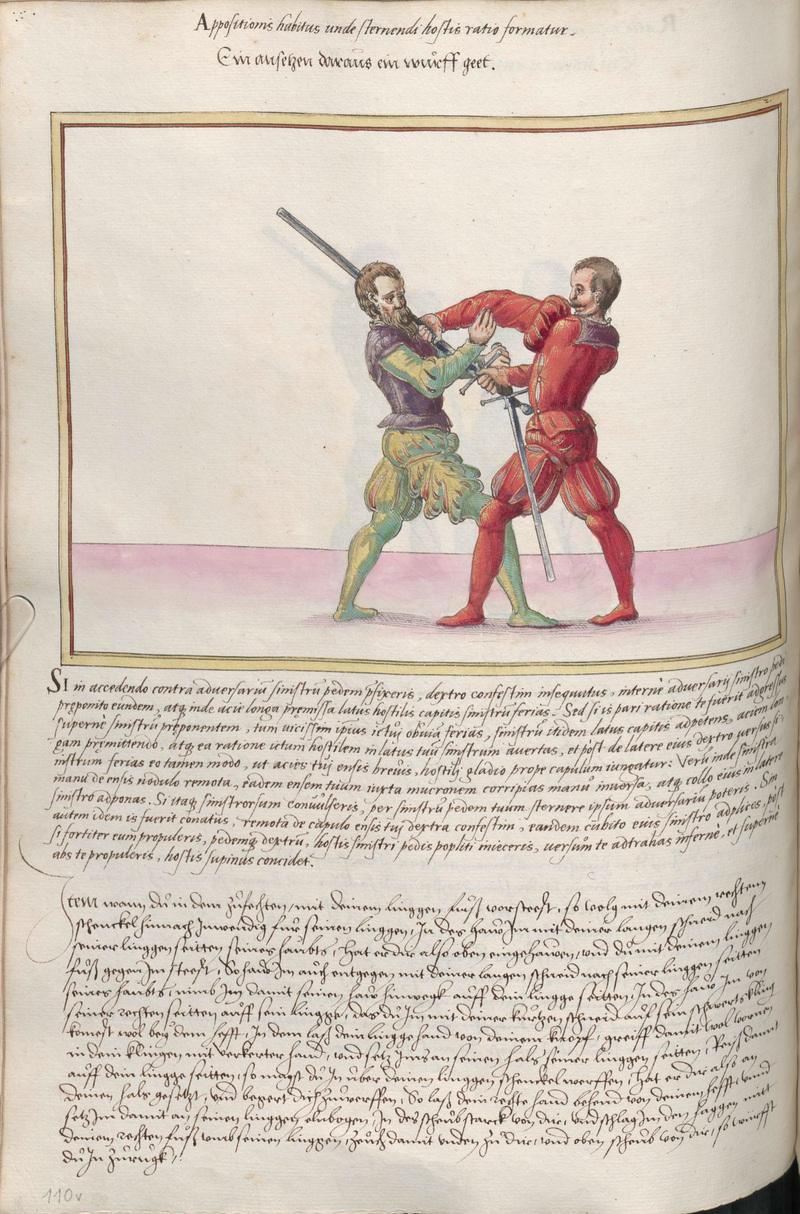 Appositionis habitus unde sternendi hostis ratio formatur.
Ein ansetzen daraus ein wurff geet.
SI in accedendo contra adversariũ sinistrũ pedem p̃fixeris, dextro confestim insequutus, internè adversarij sinistro pedi
preposito eundem, atq; inde acie longa premissa latus hostilis capitis sinistrũ ferias. Sed si is pari ratione te fuerit adgressus
supernè sinistrũ preponentem, tum vicissim ipsius ictui obviã ferias, sinistrũ itidem latus capitis adpetens, aciem lon
gam premittendo, atq; ea ratione ictum hostilem in latus tuũ sinistrum avertas, et post de latere eius dextro versus si:
nistrum ferias eo tamen modo, ut acies tui ensis brevis, hostili gladio prope capulum iungatur: Verũ inde sinistra
manu de ensis nodulo remota, eadem ensem tuum iuxta mucronem corripias manu inversa, atq; collo eius in latere
sinistro adponas. Si itaq; sinistrorsum convulseris, per sinistrũ pedem tuum sternere ipsum adversariũ poteris. Sin
autem idem is fuerit conatus, remota de capulo ensis tui dextra confestim, eandem cubito eius sinistro adplices, post
si fortiter eum propuleris, pedemq; dextrũ, hostis sinistri pedis popliti inieceris, versum te adtrahas infernè, et supernè
abs te propuleris, hostis supinus concidet.
Item wann du in dem zufechten mit deinem linggen fuß vorsteest, so volg mit deinem rechtem
schenckel hinnach Inwendig fur seinen linggen, In des haw Im mit deiner langen schneid nach
seiner linggen seitten seines haubts, hat er dir also oben eingehawen, und du mit deinem linggen
fuß gegen Im steest, So haw Im auch entgegen mit deiner langen schneid nach seiner linggen seitten
seines haubts, nimb Im damit seinen haw hinwegk auff dein lingge seitten, In des haw Im von
seiner rechten seitten auff sein lingge, das du Im mit deiner kurtzen schneid auf sein schwertskling
komest wol bey dem hefft, In dem laß dein lingge hand von deinem knopf, greiff damit wol vornen
in dein klingen mit verkerter hand, und setz Ims an seinen hals seiner linggen seitten, Reiß damit
auff dein lingge seitten, so magst du In uber deinen linggen schenckel werffen, Hat er dir also an
deinen hals gesetzt, und begert dich zuwerffen, So laß dein rechte hand behend von deinem hefft, und
setz Im damit an seinen linggen elnbogen, In des scheub starck von dir, und schlag In den haggen mit
deinem rechten fuß umb seinen linggen, zeuch damit unden zu dir, und oben scheub von dir, so wurfft
du In zuruck.
110v